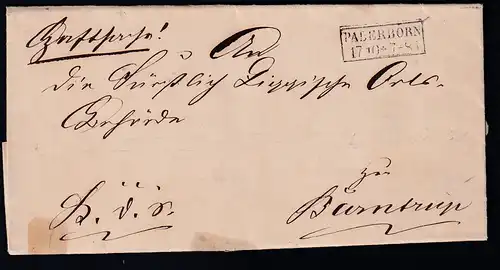 Haftsache!
PADERBORN
17 10 * 7-8
An
die Fürstlich Lippische Orts-
Behörde
zu
H. d. s.
Barntrup